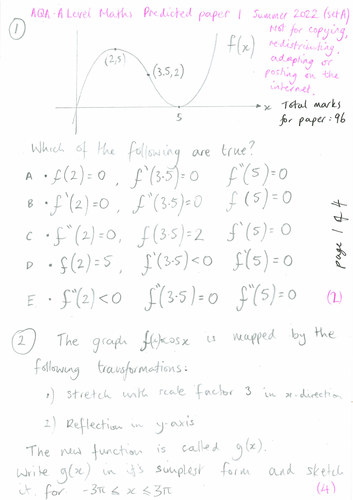 AQA-A Level Maths Predicted paper 1 Summer 2022 (set A)
Not for copying,
redistributing,
adapting or
posting on the
internet.
① f(x)
(2,5)
(3.5,2)
x
5
Total marks
for paper: 96
Which of the following are true?
A • f(2)=0, f'(3.5)=0 f''(5)=0
B • f'(2)=0, f''(3.5)=0 f(5)=0
C • f''(2)=0, f(3.5)=2 f'(5)=0
D • f(2)=5, f'(3.5)<0 f'(5)=0
E • f''(2)<0 f''(3.5)=0 f''(5)=0 (2)
page 1 of 4
② The graph cosx is mapped by the
following transformations:
1) Stretch with scale factor 3 in x-direction
2) Reflection in y-axis
The new function is called g(x).
Write g(x) in it's simplest form and sketch
it for -3π ≤ x ≤ 3π (4)